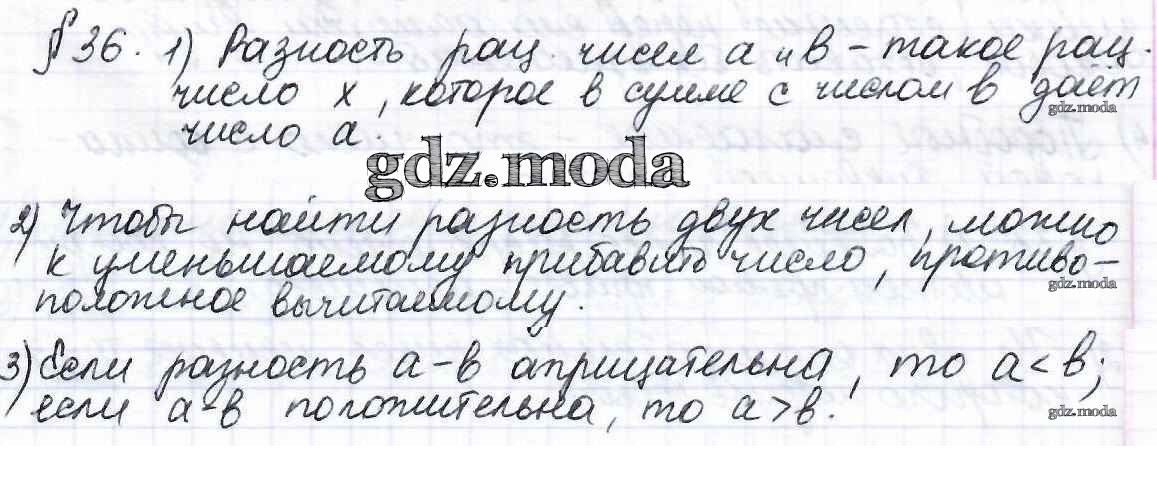 § 36. 1) Разность рац. чисел a и b – такое рац.
число x, которое в сумме с числом b даёт
число a.
gdz.moda
gdz.moda
2) Чтобы найти разность двух чисел, можно
к уменьшаемому прибавить число, противо-
положное вычитаемому.
gdz.moda
3) Если разность a-b отрицательна, то a < b;
если a-b положительна, то a > b.
gdz.moda